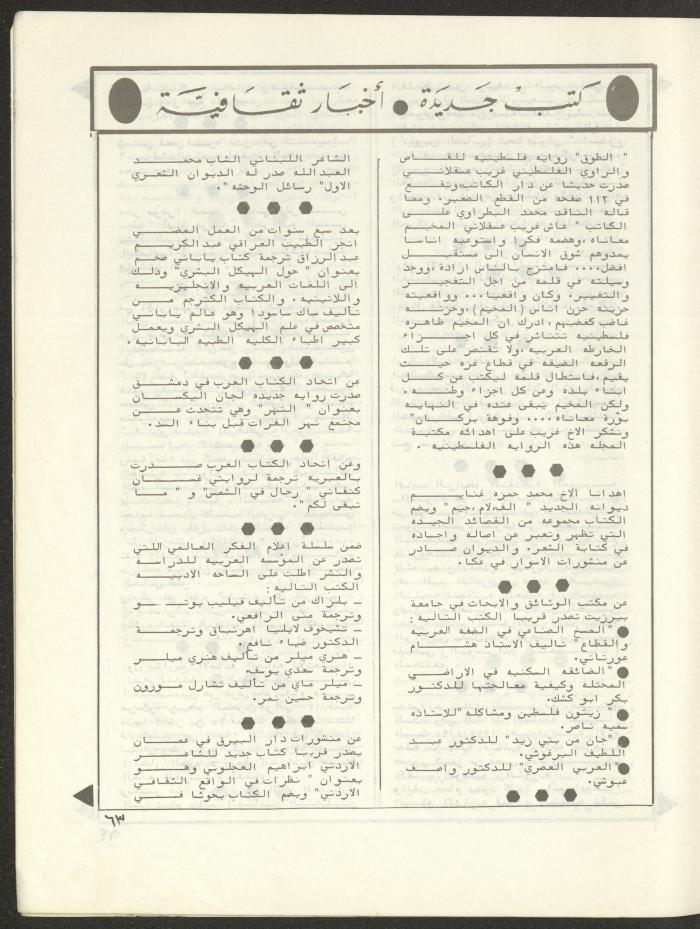 كتب جديدة ● أخبار ثقافية
" الطوق" روايه فلسطينيه للقاص
والراوي الفلسطيني غريب عسقلاني
صدرت حديثا عن دار الكاتب،وتقع
في ١١٢ صفحه من القطع الصغير. ومما
قاله الناقد محمد البطراوي على
الكاتب " عاش غريب عسقلاني المخيم
معاناه،وهضمه فكرا واستوعبه اناسا
يمدوهم شوق الانسان الى مستقبل
افضل.... فامتزج بالناس ارادة،ووجد
وسيلته في قلمه من اجل التفجير
والتغيير. وكان واقعيا... وواقعيته
حزينه حزن اناس (المخيم)،وحزنه
غاضب كغضبهم،ادرك ان المخيم ظاهره
فلسطينيه تتناثر في كل اجزاء
الخارطه العربيه،ولا تقتصر على تلك
الرقعه الضيقه في قطاع غزه حيث
يقيم،فاستطال قلمه ليكتب عن كل
ابناء بلده وعن كل اجزاء وطنه.
ولكن المخيم يبقى عنده في النهايه
بؤرة معاناه.... وفوهة بركان"
ونشكر الاخ غريب على اهدائه مكتبة
المجله هذه الروايه الفلسطينيه .
اهدانا الاخ محمد حمزه غنايم
ديوانه الجديد " الف،لام،جيم" ويضم
الكتاب مجموعه من القصائد الجيده
التي تظهر وتعبر عن اصاله واجاده
في كتابة الشعر. والديوان صادر
عن منشورات الاسوار في عكا.
عن مكتب الوثائق والابحاث في جامعة
بيرزيت تصدر قريبا الكتب التاليه:
● "المسح الصناعي في الضفه العربيه
والقطاع" تاليف الاستاذ هشام
عورتاني.
● "الضائقه السكنيه في الاراضي
المحتله وكيفية معالجتها للدكتور
بكر ابو كشك.
● " زيتون فلسطين ومشاكله"للاستاذه
سميه ناصر.
● "جان من بني زيد" للدكتور عبد
اللطيف البرغوثي.
● "العربي العصري" للدكتور واصف
عبوشي.
الشاعر اللبناني الشاب محمد
العبدالله صدر له الديوان الشعري
الاول" رسائل الوحشه".
بعد سبع سنوات من العمل المضني
انجز الطبيب العراقي عبدالكريم
عبدالرزاق ترجمة كتاب ياباني ضخم
بعنوان " حول الهيكل البشري" وذلك
الى اللغات العربيه والانجليزيه
واللاتينيه. والكتاب الكترجم من
تأليف ساك ساسودا وهو عالم ياباني
متخصص في علم الهيكل البشري ويعمل
كبير اطباء الكليه الطبيه اليابانيه.
عن اتحاد الكتاب العرب في دمشق
صدرت روايه جديده لجان اليكسان
بعنوان " النهر" وهي تتحدث عن
مجتمع نهر الفرات قبل بناء السد.
وعن اتحاد الكتاب العرب صدرت
بالعبريه ترجمة لروايتي غسان
كنفاني " رجال في الشمس" و " ما
تبقى لكم".
ضمن سلسلة اعلام الفكر العالمي اللتي
تصدر عن المؤسسه العربيه للدراسه
والنشر اطلت على الساحه الادبيه
الكتب التاليه:
ـ بلزاك من تأليف فيليب بوتو
وترجمة منى الرافعي.
ـ تشيخوف لايليا اهرنباق وترجمة
الدكتور ضياء نافع.
ـ هنري ميلر من تأليف هنري ميلر
وترجمة سعدي يوسف.
ـ ميلر ماي من تأليف تشارل موزون
وترجمة حسين نمر.
عن منشورات دار البيرق في عمان
يصدر قريبا كتاب جديد للشاعر
الاردني ابراهيم العجلوني وهو
بعنوان " نظرات في الواقع الثقافي
الاردني" ويضم الكتاب بحوثا في
٦٣